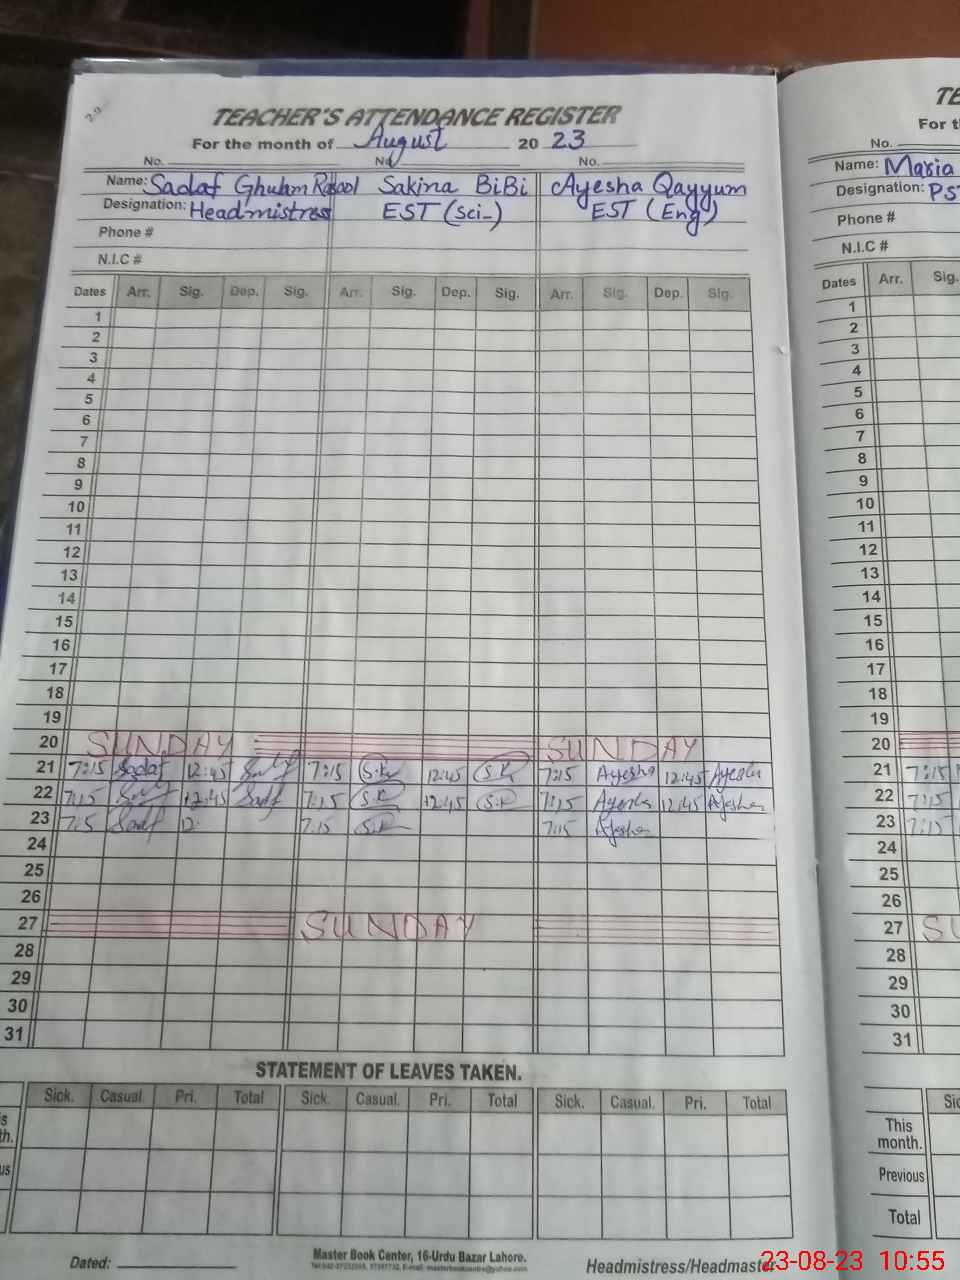 TEACHER'S ATTENDANCE REGISTER
For the month of August 20 23
No. No. No.
Name: Sadaf Ghulam Rasool Sakina BiBi Ayesha Qayyum
Designation: Headmistress EST (Sci-) EST (Eng)
Phone #
N.I.C #
Dates Arr. Sig. Dep. Sig. Arr. Sig. Dep. Sig. Arr. Sig. Dep. Sig.
1
2
3
4
5
6
7
8
9
10
11
12
13
14
15
16
17
18
19
20 SUNDAY SUNDAY
21 7:15 Sadaf 12:45 7:15 S.K 12:45 S.K 7:15 Ayesha 12:45 Ayesha
22 7:15 12:45 Sadf 7:15 S.K 12:45 S.K 7:15 Ayesha 12:45 Ayesha
23 7:15 Sadf 12: 7:15 S.K 7:15 Ayesha
24
25
26
27 SUNDAY
28
29
30
31
STATEMENT OF LEAVES TAKEN.
Sick. Casual Pri. Total Sick. Casual. Pri. Total Sick. Casual. Pri. Total
Dated:
Master Book Center, 16-Urdu Bazar Lahore.
Headmistress/Headmaster
TE
For t
No.
Name: Maria
Designation: PS
Phone #
N.I.C #
Dates Arr. Sig.
1
2
3
4
5
6
7
8
9
10
11
12
13
14
15
16
17
18
19
20
21 7:15
22 7:15
23 7:15
24
25
26
27 SU
28
29
30
31
Sic
This
month.
Previous
Total
23-08-23 10:55